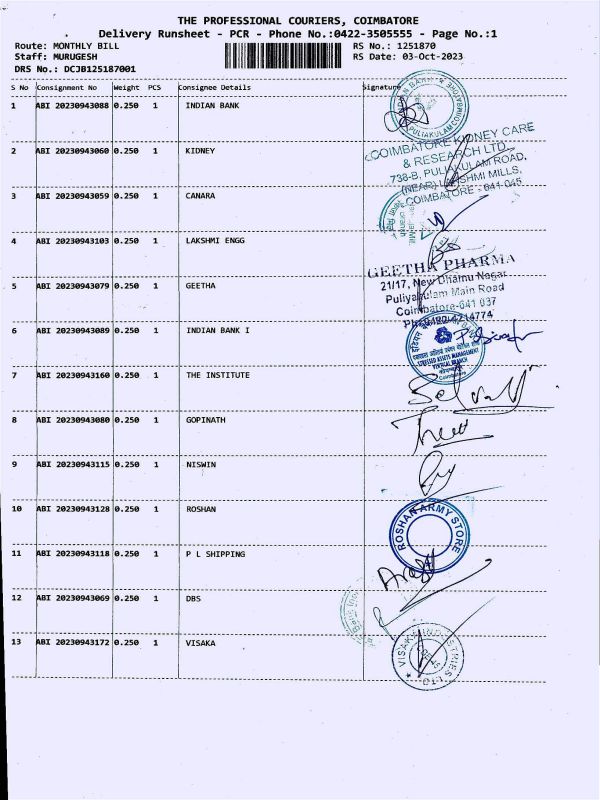 THE PROFESSIONAL COURIERS, COIMBATORE
Delivery Runsheet - PCR - Phone No.:0422-3505555 - Page No.:1
Route: MONTHLY BILL RS No.: 1251870
Staff: MURUGESH RS Date: 03-Oct-2023
DRS No.: DCJB125187001
S No Consignment No Weight PCS Consignee Details Signature
1 ABI 20230943088 0.250 1 INDIAN BANK
PULIAKULAM
2 ABI 20230943060 0.250 1 KIDNEY
COIMBATORE KIDNEY CARE
& RESEARCH LTD.
738-B, PULIAKULAM ROAD,
(NEAR) LAKSHMI MILLS,
COIMBATORE - 641 045
3 ABI 20230943059 0.250 1 CANARA
4 ABI 20230943103 0.250 1 LAKSHMI ENGG
GEETHA PHARMA
21/17, New Dhamu Nagar
Puliyakulam Main Road
Coimbatore-641 037
5 ABI 20230943079 0.250 1 GEETHA
6 ABI 20230943089 0.250 1 INDIAN BANK I
STRESSED ASSETS MANAGEMENT
VERTICAL BRANCH
7 ABI 20230943160 0.250 1 THE INSTITUTE
8 ABI 20230943080 0.250 1 GOPINATH
9 ABI 20230943115 0.250 1 NISWIN
10 ABI 20230943128 0.250 1 ROSHAN
ROSHAN ARMY STORE
11 ABI 20230943118 0.250 1 P L SHIPPING
12 ABI 20230943069 0.250 1 DBS
13 ABI 20230943172 0.250 1 VISAKA
VISAKA INDUSTRIES LTD